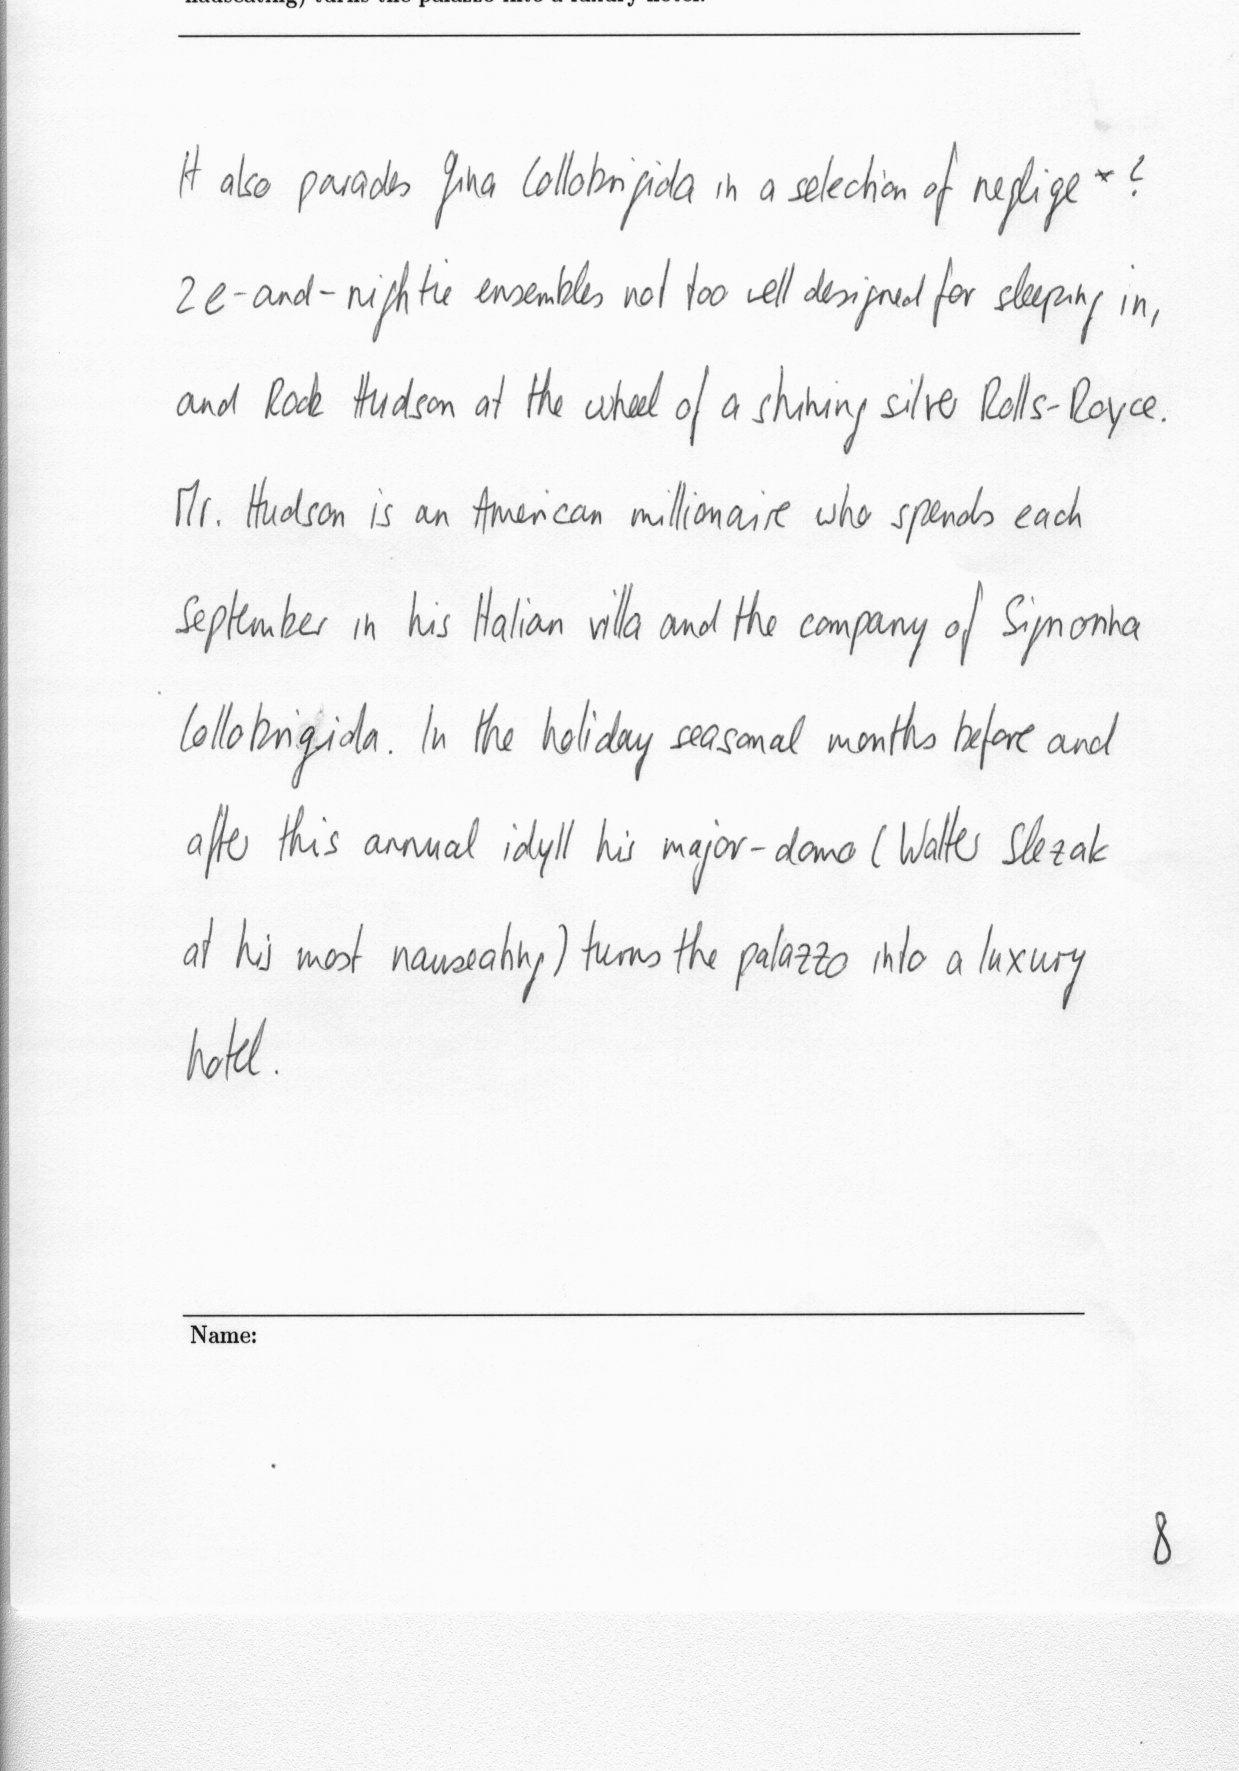 nauseating) turns the palazzo into a luxury hotel.
It also parades Gina Lollobrigida in a selection of neglige *?
2e-and-nightie ensembles not too well designed for sleeping in,
and Rock Hudson at the wheel of a shining silver Rolls-Royce.
Mr. Hudson is an American millionaire who spends each
September in his Italian villa and the company of Signorina
Lollobrigida. In the holiday seasonal months before and
after this annual idyll his major-domo (Walter Slezak
at his most nauseating) turns the palazzo into a luxury
hotel.
Name:
8